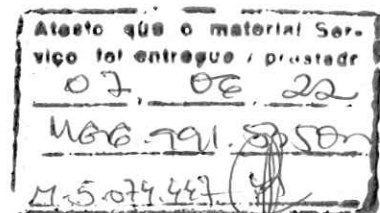 Atesto que o material Ser-
viço foi entregue / prestado
07 06 22
M.5.074.447